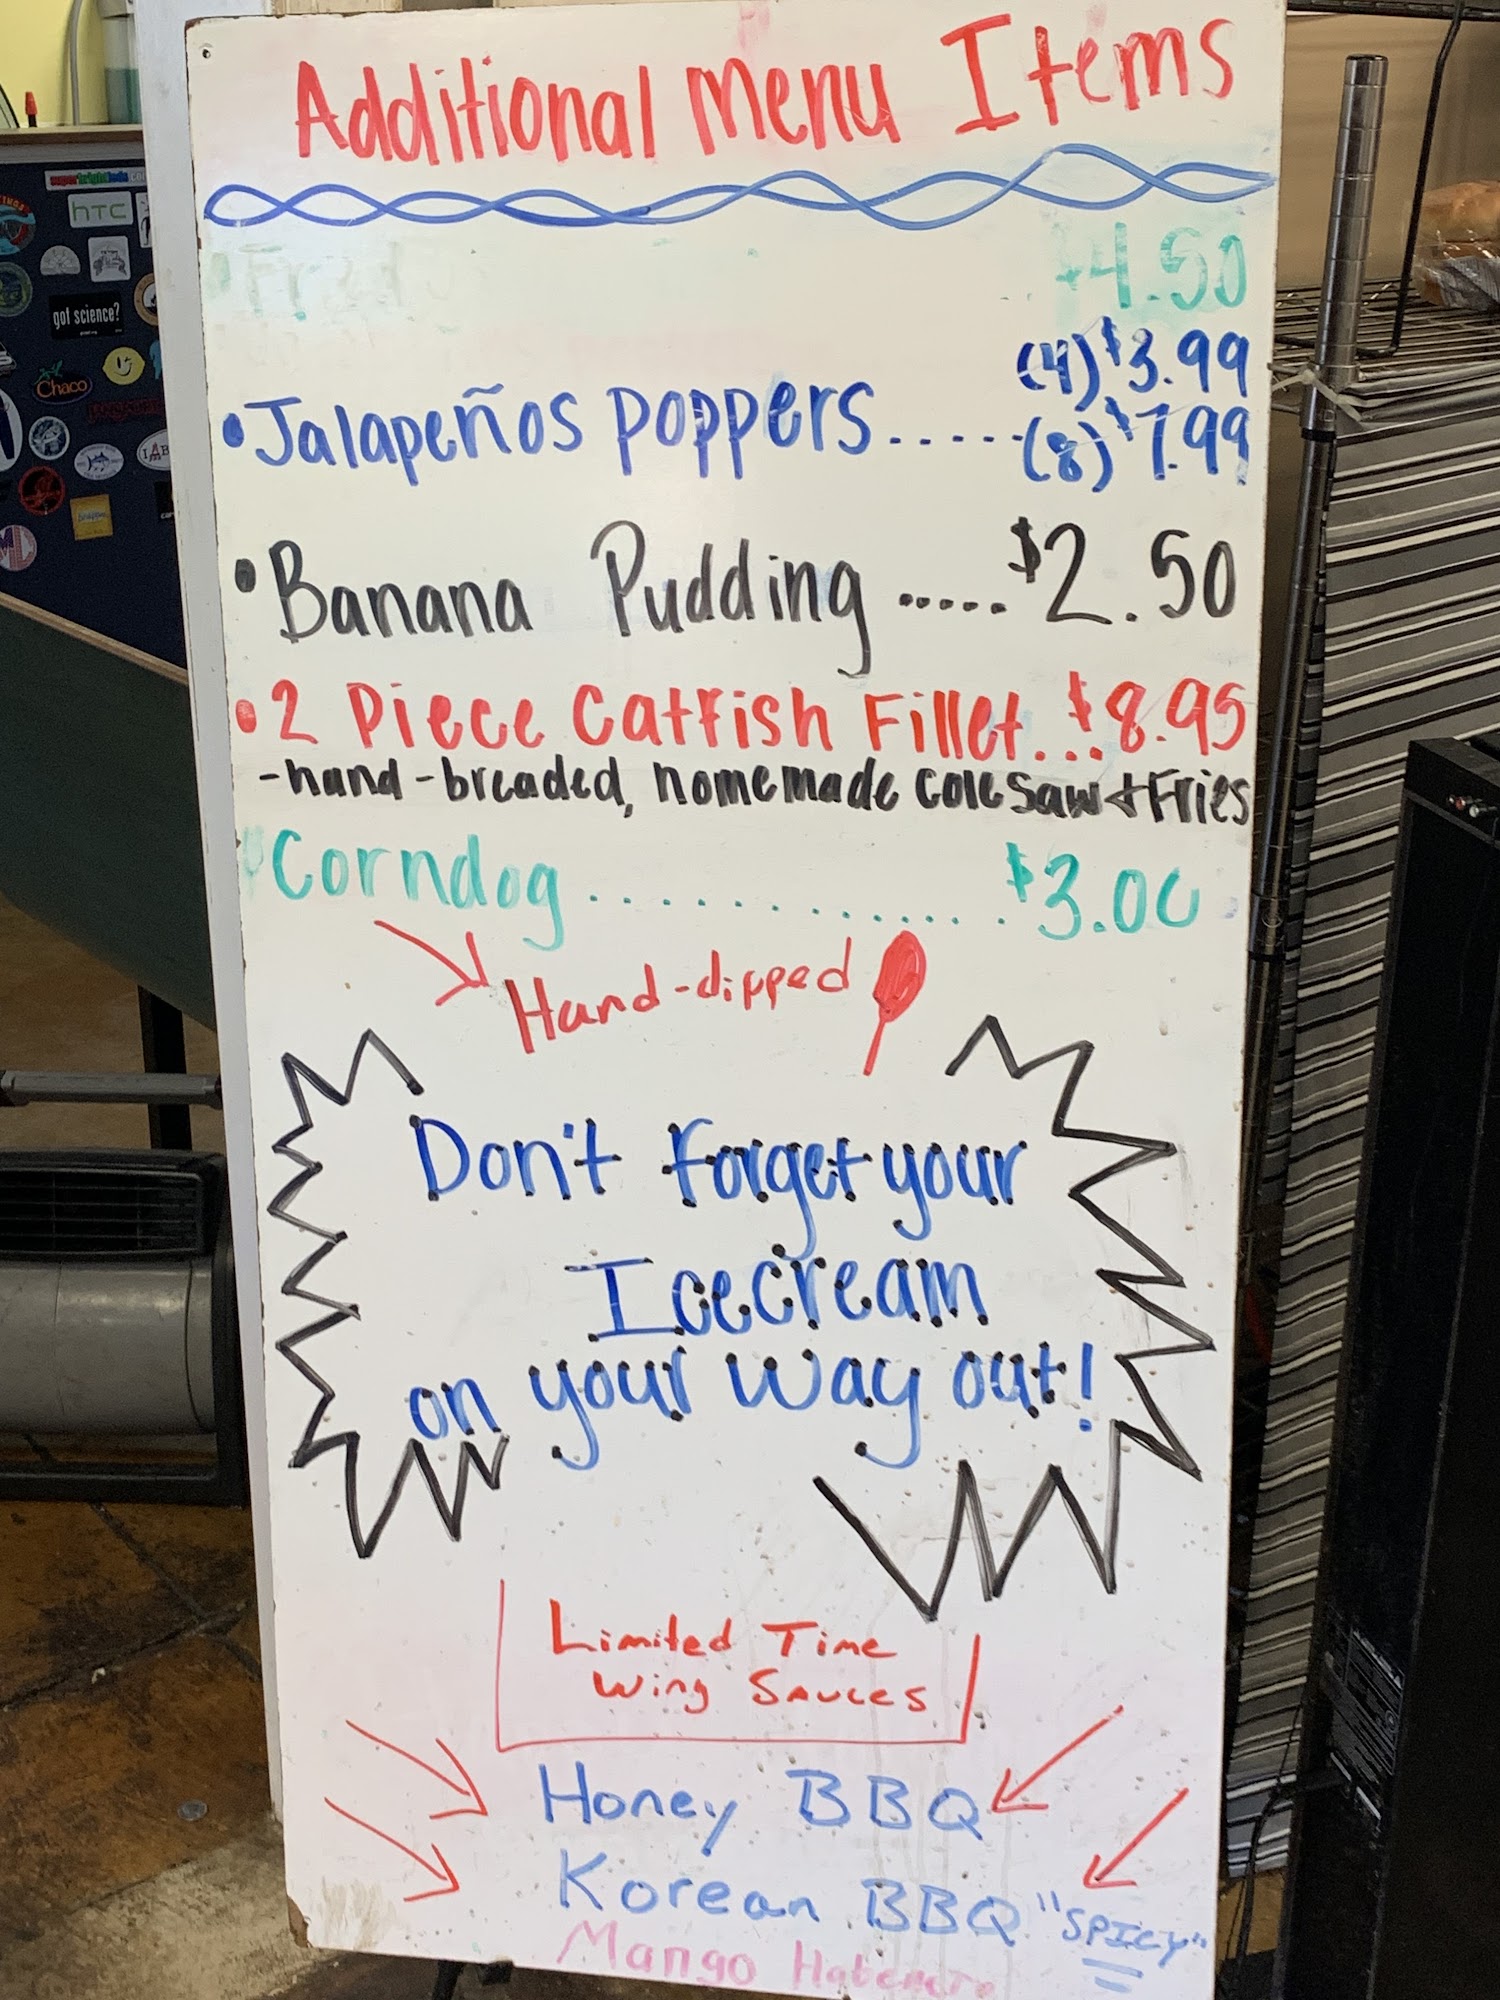 Additional Menu Items
Fried
4.50
(4) $3.99
•Jalapeños poppers.....(8) $7.99
•Banana Pudding.....$2.50
•2 Piece Catfish Fillet...$8.95
-hand-breaded, homemade cole saw + Fries
Corndog...............$3.00
Hand-dipped
Don't forget your
Icecream
on your way out!
Limited Time
Wing Sauces
Honey BBQ
Korean BBQ "SPICY"
Mango Habenero
superbrightleds.com
hTC
got science?
Chaco